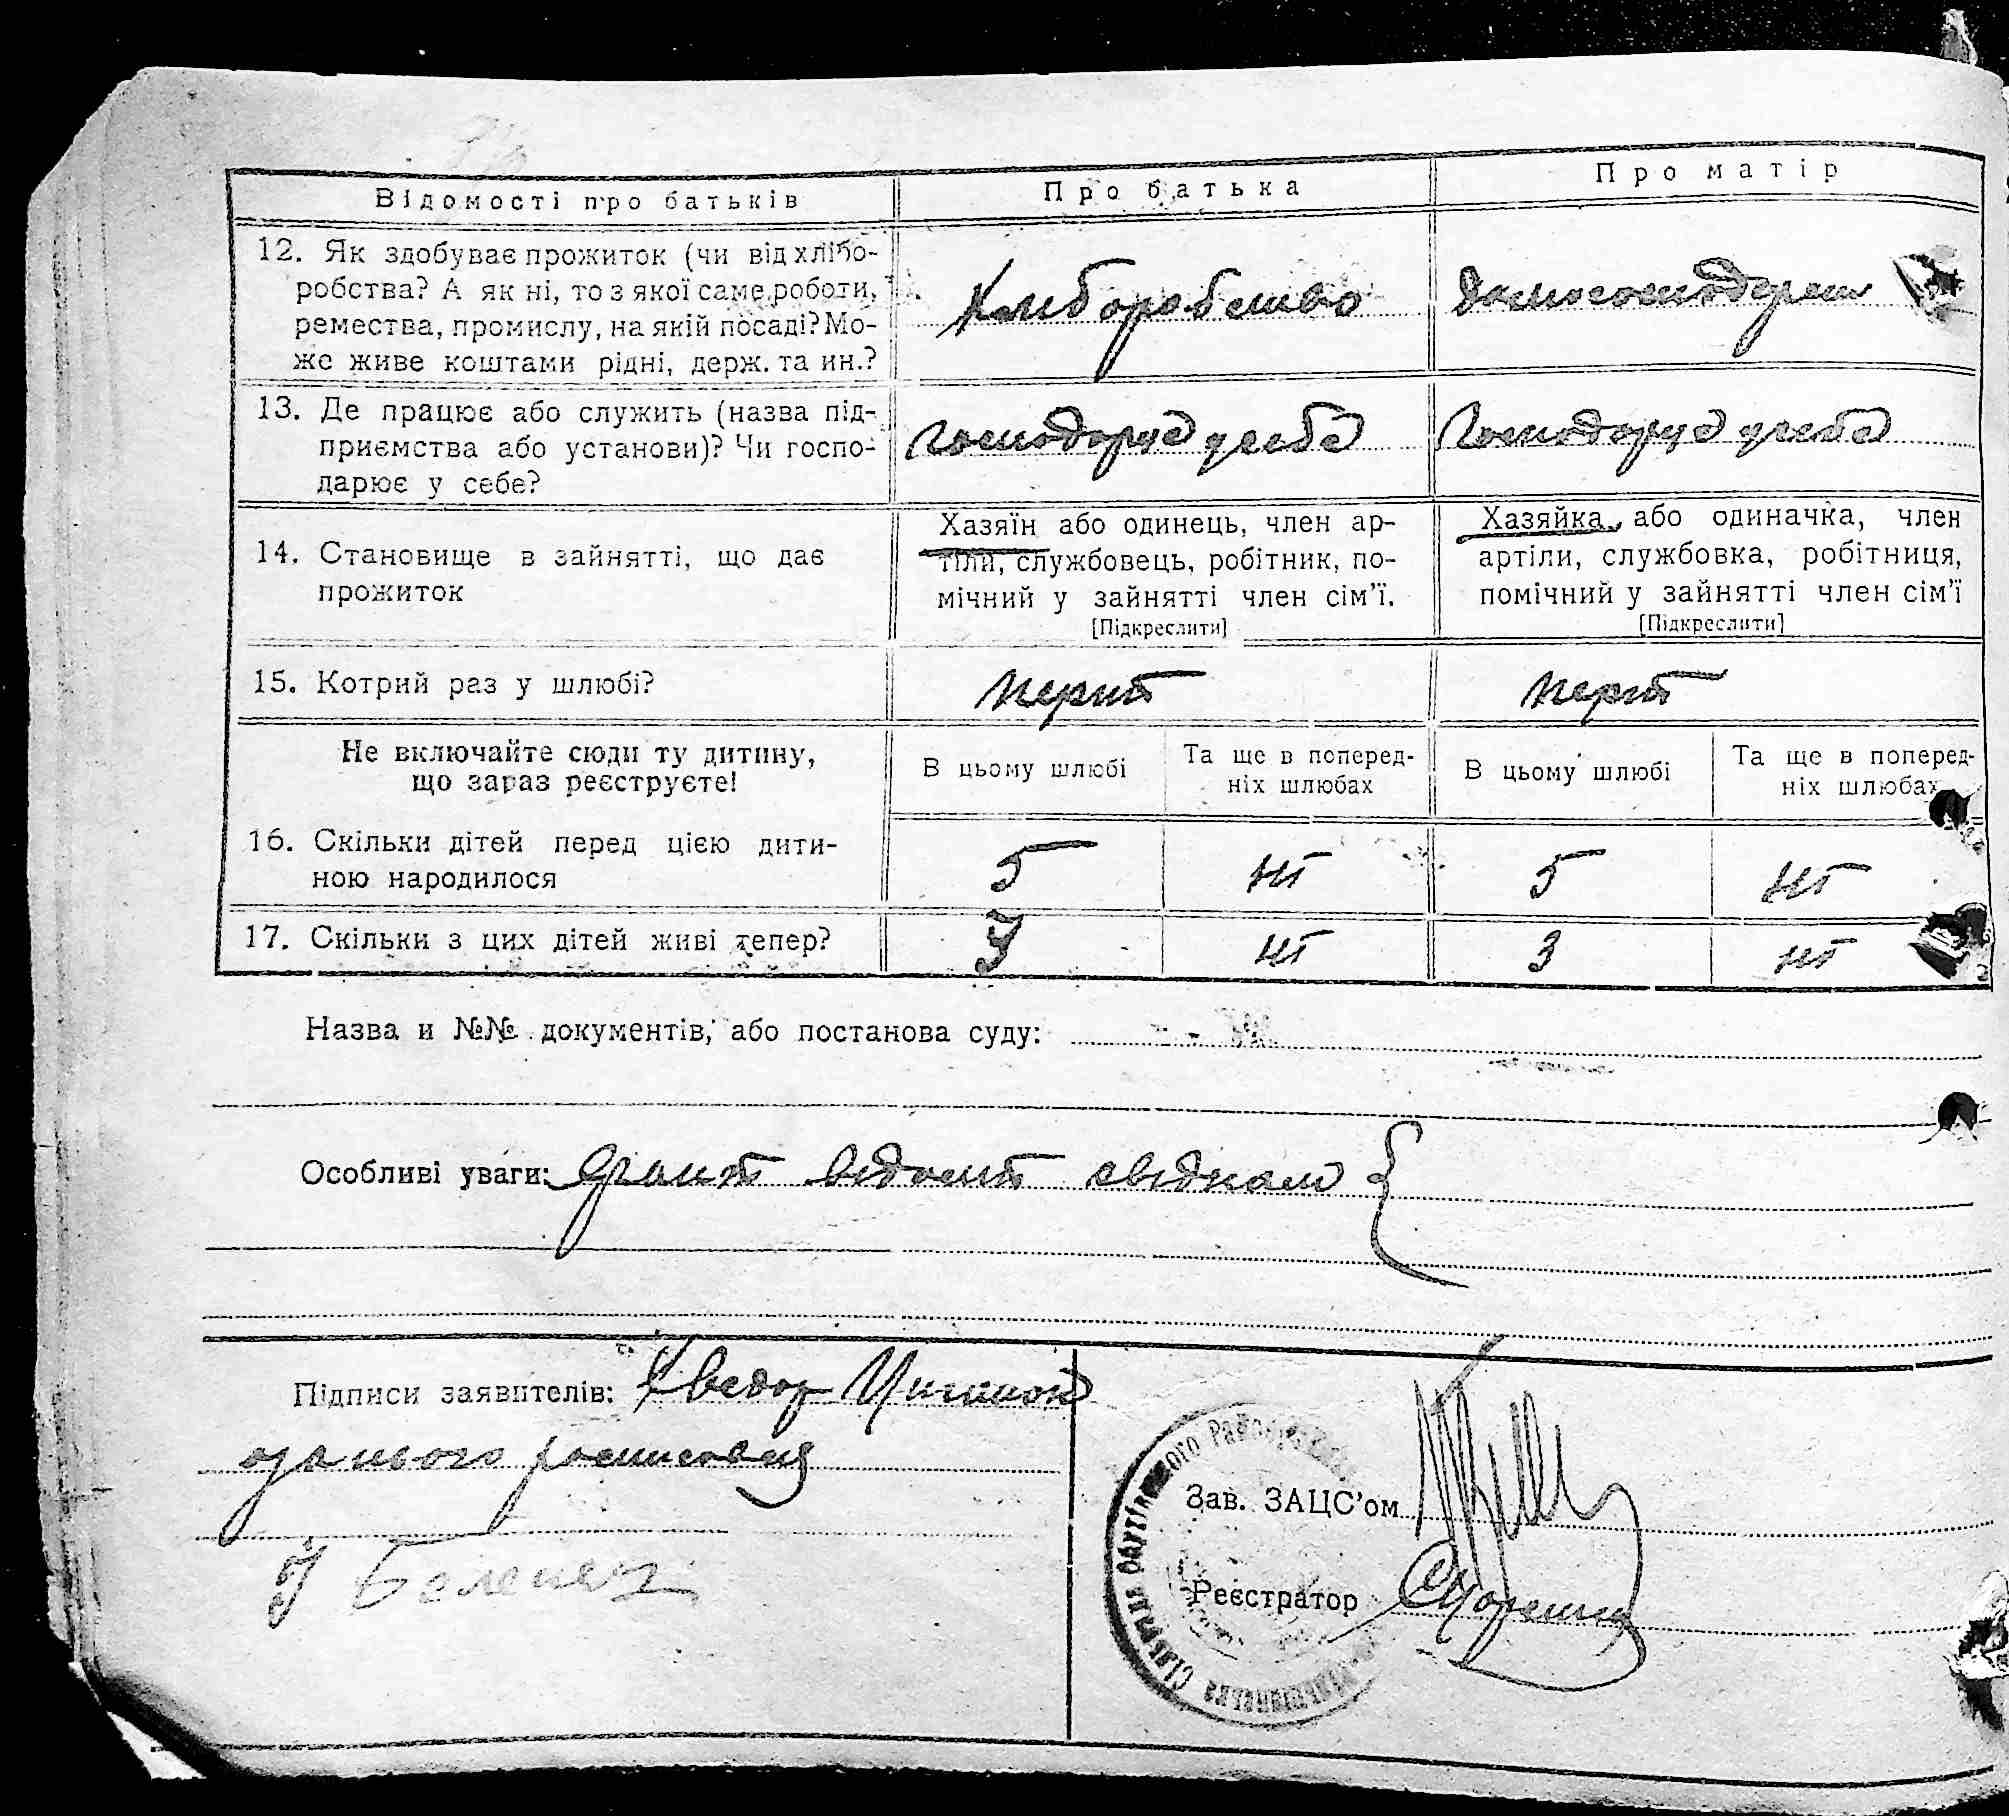 Відомості про батьків
Про батька
Про матір
12. Як здобуває прожиток (чи від хлібо-
робства? А як ні, то з якої саме роботи,
ремества, промислу, на якій посаді? Мо-
же живе коштами рідні, держ. та ин.?
Хлиборобство
13. Де працює або служить (назва під-
приємства або установи)? Чи госпо-
дарює у себе?
Господорує у себе
Господорує у себе
14. Становище в зайнятті, що дає
прожиток
Хазяїн або одинець, член ар-
тіли, службовець, робітник, по-
мічний у зайнятті член сім'ї.
[Підкреслити]
Хазяйка або одиначка, член
артіли, службовка, робітниця,
помічний у зайнятті член сім'ї
[Підкреслити]
15. Котрий раз у шлюбі?
Не включайте сюди ту дитину,
що зараз реєструєте!
В цьому шлюбі
Та ще в поперед-
ніх шлюбах
В цьому шлюбі
Та ще в поперед-
ніх шлюбах
16. Скільки дітей перед цією дити-
ною народилося
5
ні
5
ні
17. Скільки з цих дітей живі тепер?
3
ні
3
ні
Назва и №№ документів, або постанова суду:
Особливі уваги:
Підписи заявителів: Хведор
Зав. ЗАЦС'ом
Реєстратор